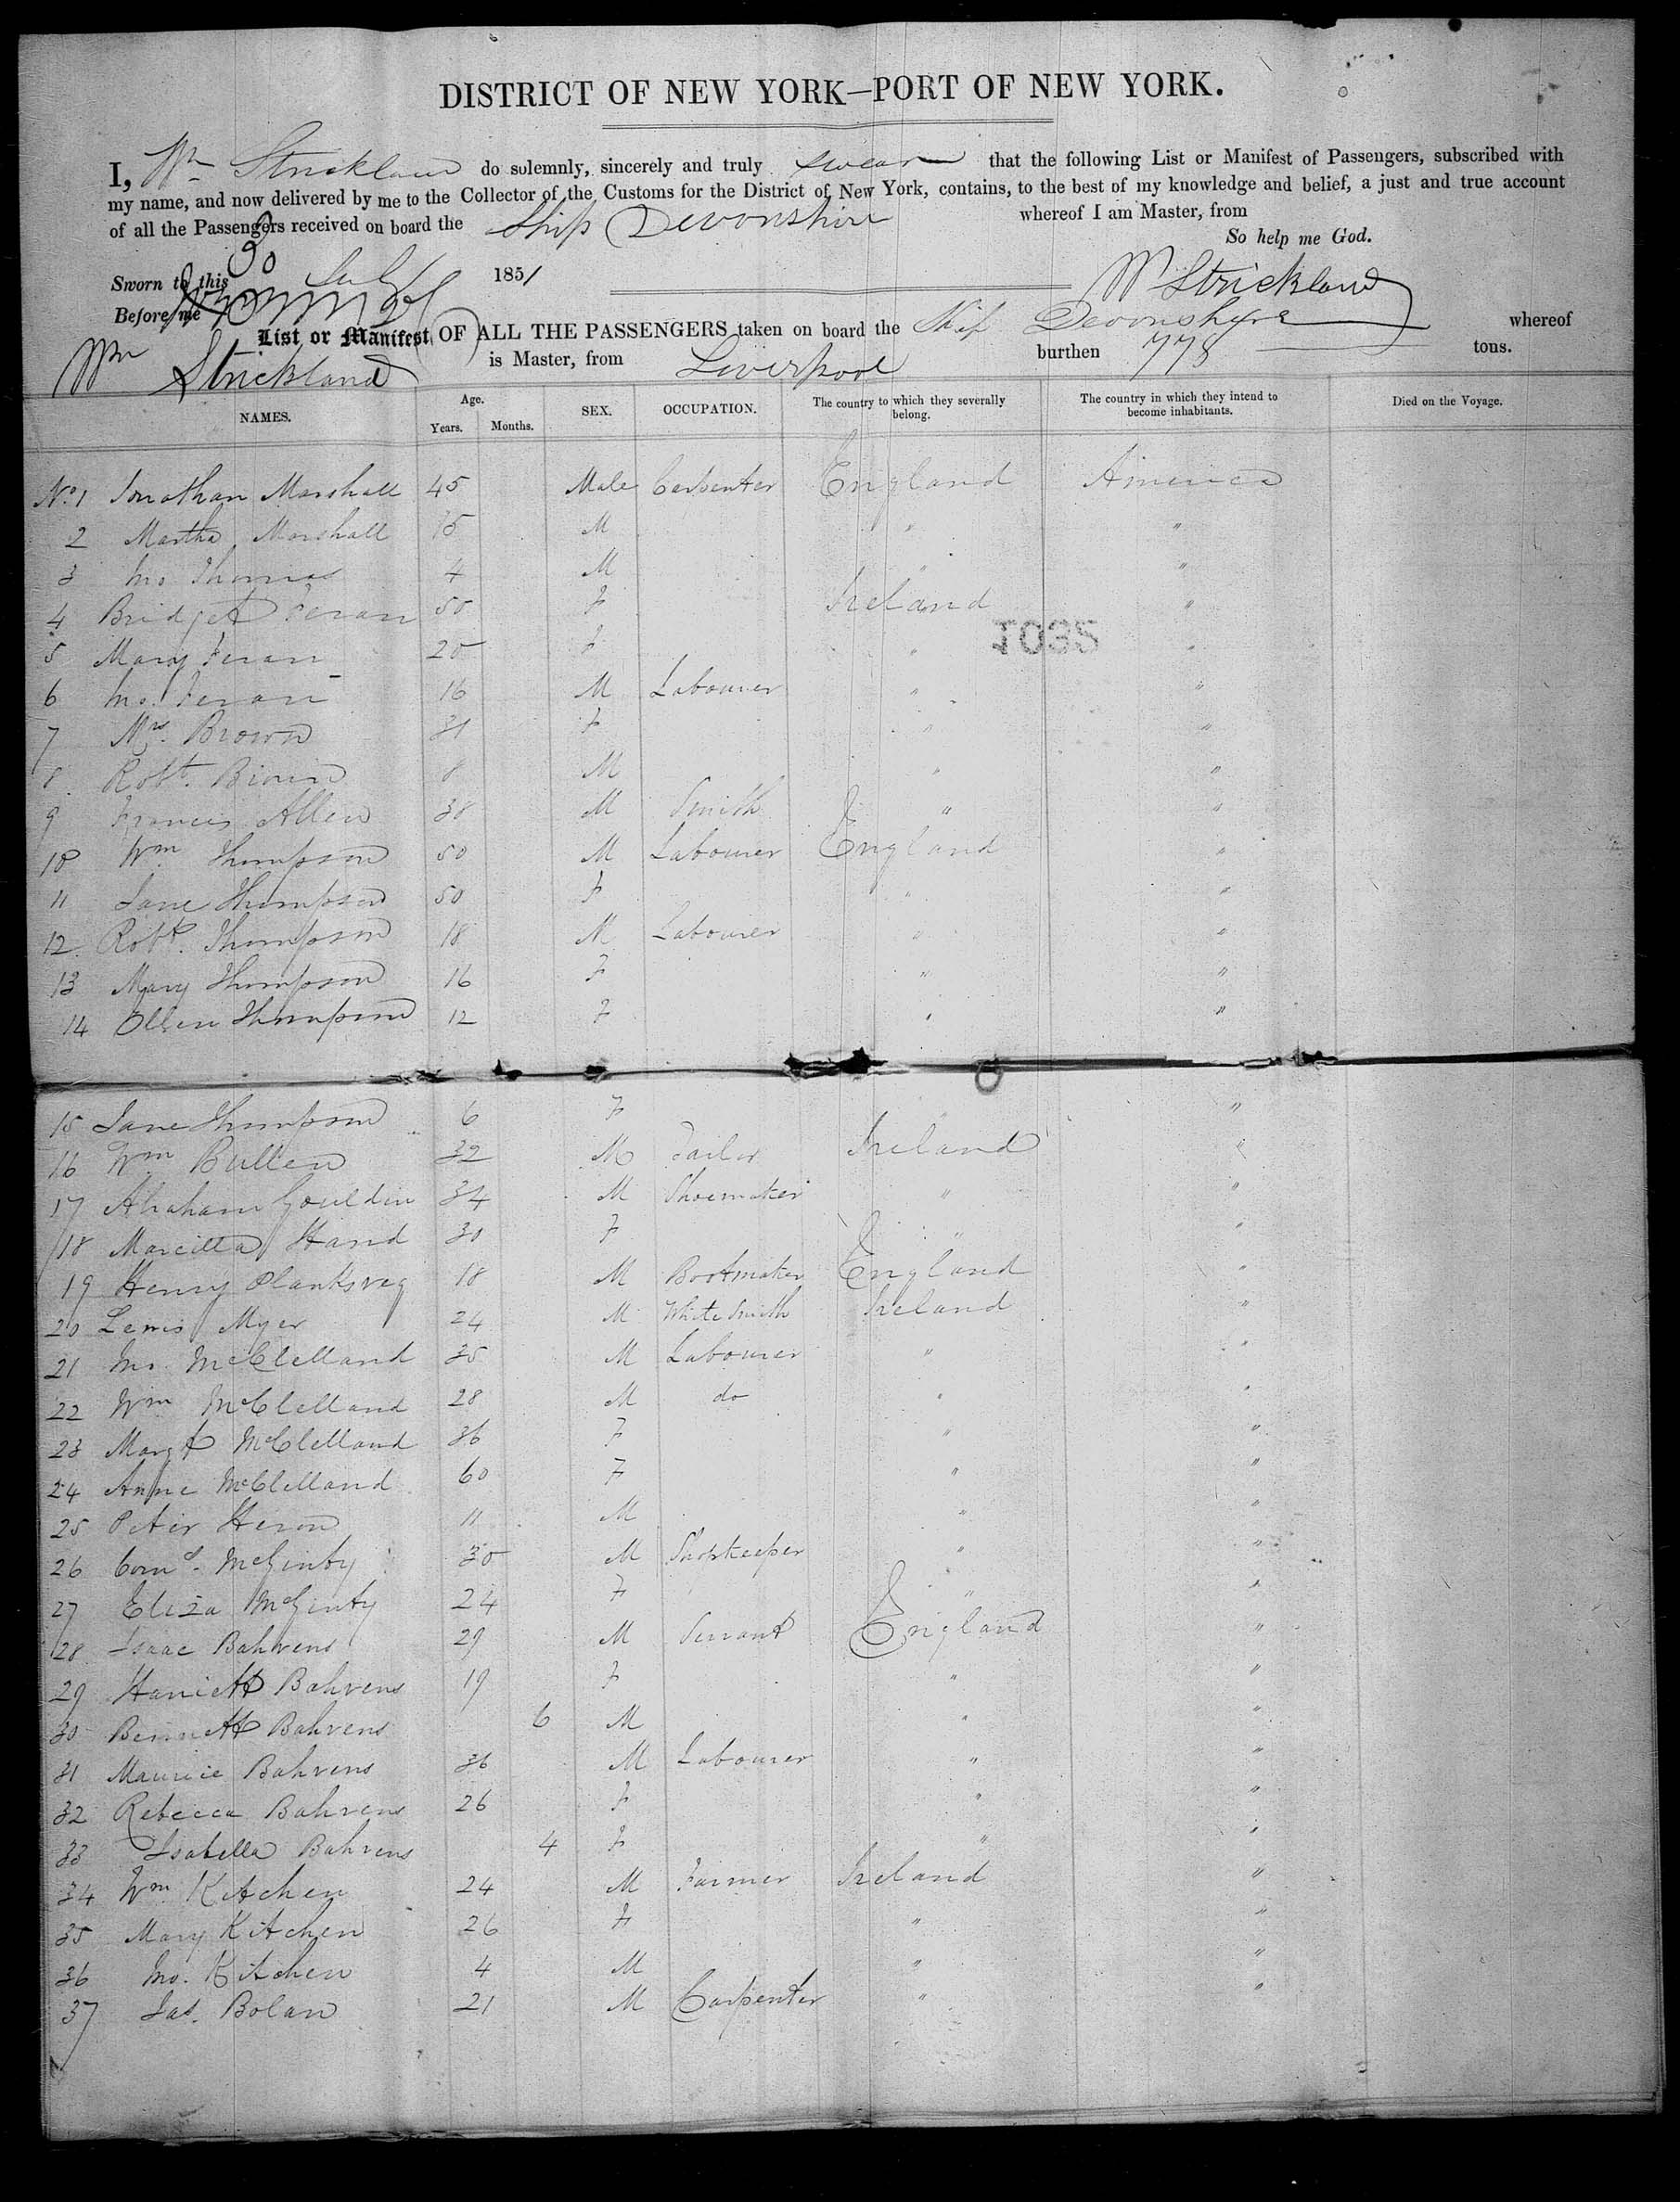 DISTRICT OF NEW YORK—PORT OF NEW YORK.
I, Wm Strickland do solemnly, sincerely and truly swear that the following List or Manifest of Passengers, subscribed with
my name, and now delivered by me to the Collector of the Customs for the District of New York, contains, to the best of my knowledge and belief, a just and true account
of all the Passengers received on board the Ship Devonshire whereof I am Master, from
So help me God.
Sworn to this 30 July 1851
Wm Strickland
Before me
List or Manifest OF ALL THE PASSENGERS taken on board the Ship Devonshire whereof
Wm Strickland is Master, from Liverpool burthen 778 tons.
NAMES. Age. Years. Months. SEX. OCCUPATION. The country to which they severally belong. The country in which they intend to become inhabitants. Died on the Voyage.
No. 1 Jonathan Marshall 45 Male Carpenter England America
2 Martha Marshall 15 M " "
3 Jno Thomas 4 M " "
4 Bridget Feran 50 F Ireland "
5 Mary Feran 20 F " "
6 Jno. Feran 16 M Labourer " "
7 Mrs. Brown 31 F " "
8 Robt. 8 M " "
9 Francis Allen 38 M Smith " "
10 Wm Thompson 50 M Labourer England "
11 Jane Thompson 50 F " "
12 Robt. Thompson 18 M Labourer " "
13 Mary Thompson 16 F " "
14 Ellen Thompson 12 F " "
15 Jane Thompson 6 F " "
16 Wm Bullen 32 M Tailor Ireland "
17 Abraham Gouldin 34 M Shoemaker " "
18 Marcilla Hand 30 F " "
19 Henry 18 M Bootmaker England "
20 Lewis Myer 24 M White Smith Ireland "
21 Jno McClelland 35 M Labourer " "
22 Wm McClelland 28 M do " "
23 Margt McClelland 36 F " "
24 Anne McClelland 60 F " "
25 Peter Heron 11 M " "
26 Corns. McGinty 30 M Shopkeeper " "
27 Eliza McGinty 24 F " "
28 Isaac Bahrens 29 M Servant England "
29 Harriett Bahrens 19 F " "
30 Bennett Bahrens 6 M " "
31 Maurice Bahrens 36 M Labourer " "
32 Rebecca Bahrens 26 F " "
33 Isabella Bahrens 4 F " "
34 Wm Kitchen 24 M Farmer Ireland "
35 Mary Kitchen 26 F " "
36 Jno. Kitchen 4 M " "
37 Jas. Bolan 21 M Carpenter " "